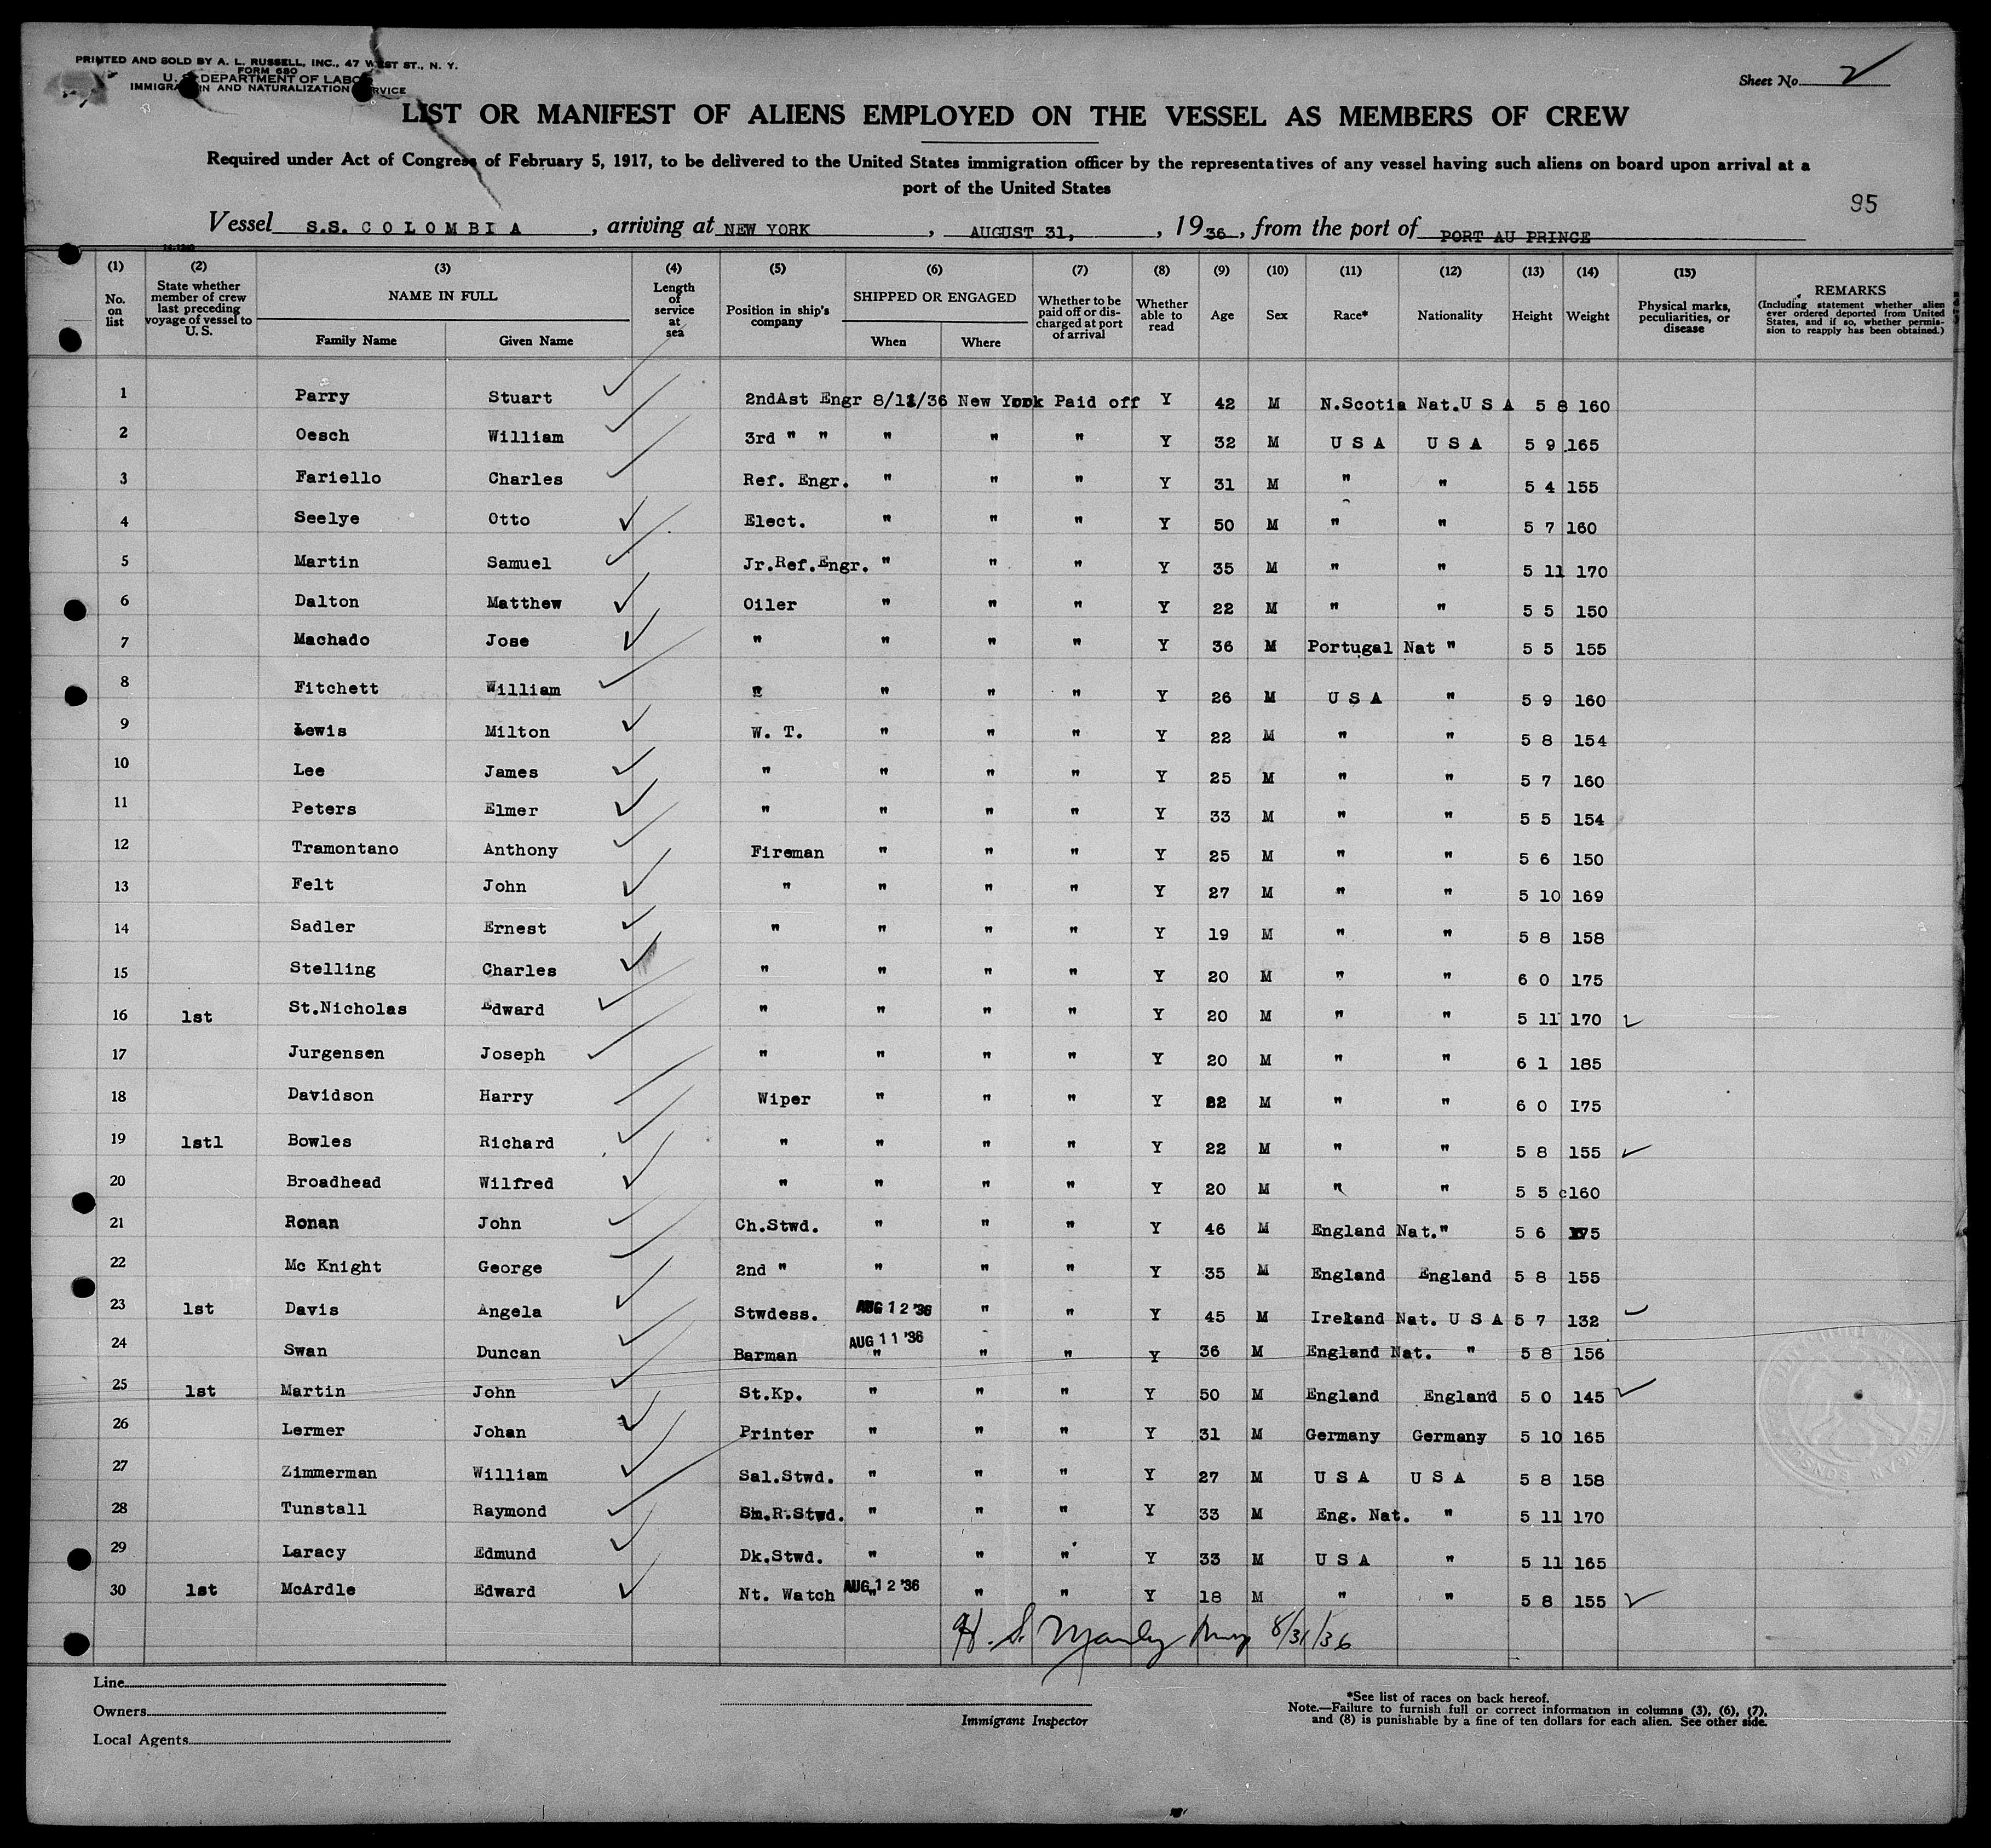 PRINTED AND SOLD BY A. L. RUSSELL, INC., 47 WEST ST., N. Y.
FORM 680
U. S. DEPARTMENT OF LABOR
IMMIGRATION AND NATURALIZATION SERVICE
Sheet No. 2
LIST OR MANIFEST OF ALIENS EMPLOYED ON THE VESSEL AS MEMBERS OF CREW
Required under Act of Congress of February 5, 1917, to be delivered to the United States immigration officer by the representatives of any vessel having such aliens on board upon arrival at a
port of the United States
95
Vessel S.S. COLOMBIA, arriving at NEW YORK, AUGUST 31, 1936, from the port of PORT AU PRINCE
14-1240
(1) No. on list (2) State whether member of crew last preceding voyage of vessel to U. S. (3) NAME IN FULL Family Name Given Name (4) Length of service at sea (5) Position in ship's company (6) SHIPPED OR ENGAGED When Where (7) Whether to be paid off or discharged at port of arrival (8) Whether able to read (9) Age (10) Sex (11) Race* (12) Nationality (13) Height (14) Weight (15) Physical marks, peculiarities, or disease REMARKS (Including statement whether alien ever ordered deported from United States, and if so, whether permission to reapply has been obtained.)
1 Parry Stuart 2ndAst Engr 8/11/36 New York Paid off Y 42 M N.Scotia Nat.U S A 5 8 160
2 Oesch William 3rd " " " " " Y 32 M U S A U S A 5 9 165
3 Fariello Charles Ref. Engr. " " " Y 31 M " " 5 4 155
4 Seelye Otto Elect. " " " Y 50 M " " 5 7 160
5 Martin Samuel Jr.Ref.Engr. " " " Y 35 M " " 5 11 170
6 Dalton Matthew Oiler " " " Y 22 M " " 5 5 150
7 Machado Jose " " " " Y 36 M Portugal Nat " 5 5 155
8 Fitchett William " " " " Y 26 M U S A " 5 9 160
9 Lewis Milton W. T. " " " Y 22 M " " 5 8 154
10 Lee James " " " " Y 25 M " " 5 7 160
11 Peters Elmer " " " " Y 33 M " " 5 5 154
12 Tramontano Anthony Fireman " " " Y 25 M " " 5 6 150
13 Felt John " " " " Y 27 M " " 5 10 169
14 Sadler Ernest " " " " Y 19 M " " 5 8 158
15 Stelling Charles " " " " Y 20 M " " 6 0 175
16 1st St.Nicholas Edward " " " " Y 20 M " " 5 11 170
17 Jurgensen Joseph " " " " Y 20 M " " 6 1 185
18 Davidson Harry Wiper " " " Y 22 M " " 6 0 I75
19 1stl Bowles Richard " " " " Y 22 M " " 5 8 155
20 Broadhead Wilfred " " " " Y 20 M " " 5 5 160
21 Ronan John Ch.Stwd. " " " Y 46 M England Nat." 5 6 175
22 Mc Knight George 2nd " " " " Y 35 M England England 5 8 155
23 1st Davis Angela Stwdess. AUG 12 '36 " " Y 45 M Ireland Nat. U S A 5 7 132
24 Swan Duncan Barman AUG 11 '36 " " " Y 36 M England Nat. " 5 8 156
25 1st Martin John St.Kp. " " " Y 50 M England England 5 0 145
26 Lermer Johan Printer " " " Y 31 M Germany Germany 5 10 165
27 Zimmerman William Sal.Stwd. " " " Y 27 M U S A U S A 5 8 158
28 Tunstall Raymond Sm.R.Stwd. " " " Y 33 M Eng. Nat. " 5 11 170
29 Laracy Edmund Dk.Stwd. " " " Y 33 M U S A " 5 11 165
30 1st McArdle Edward Nt. Watch AUG 12 '36 " " " Y 18 M " " 5 8 155
H. S. Manly 8/31/36
Line
Owners
Local Agents
Immigrant Inspector
*See list of races on back hereof.
Note.—Failure to furnish full or correct information in columns (3), (6), (7),
and (8) is punishable by a fine of ten dollars for each alien. See other side.